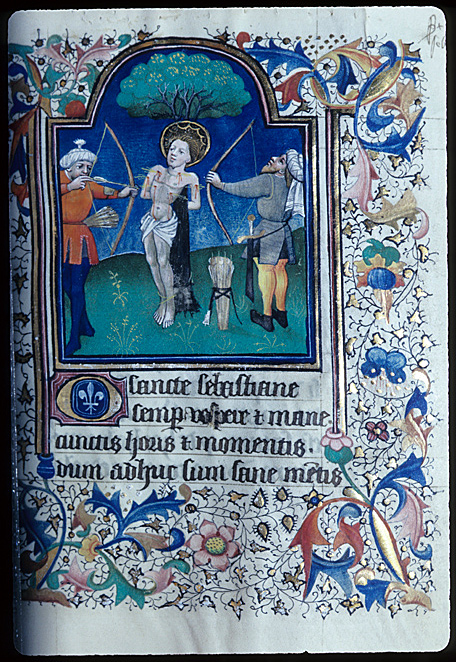 O sancte sebastiane
semp vespere & mane
cunctis horis & momentis.
dum adhuc sum sane mētis